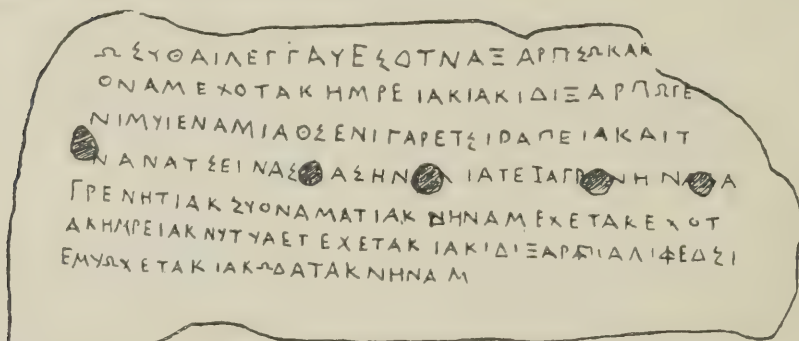 ΩΣΥΘΑΙΛΕΓΓΑΥΕΣΟΤΝΑΞΑΡΠΣΩΚΑΚ
ΟΝΑΜΕΧΟΤΑΚΗΜΡΕΙΑΚΙΑΚΙΔΙΞΑΡΠΩΓΕ
ΝΙΜΥΙΕΝΑΜΙΑΘΣΕΝΙΓΑΡΕΤΣΙΡΑΠΕΙΑΚΑΙΤ
ΝΑΝΑΤΣΕΙΝΑΣ ΑΣΗΝ ΙΑΤΕΙΑΓΡ ΝΗΝ Α
ΓΡΕΝΗΤΙΑΚΣΥΟΝΑΜΑΤΙΑΚΝΗΝΑΜΕΧΕΤΑΚΕΧΟΤ
ΑΚΗΜΡΕΙΑΚΝΥΤΥΑΕΤΕΧΕΤΑΚΙΑΚΙΔΙΞΑΡΠΙΑΛΙΦΕΔΣΙ
ΕΜΥΩΧΕΤΑΚΙΑΚΩΔΑΤΑΚΝΗΝΑΜ